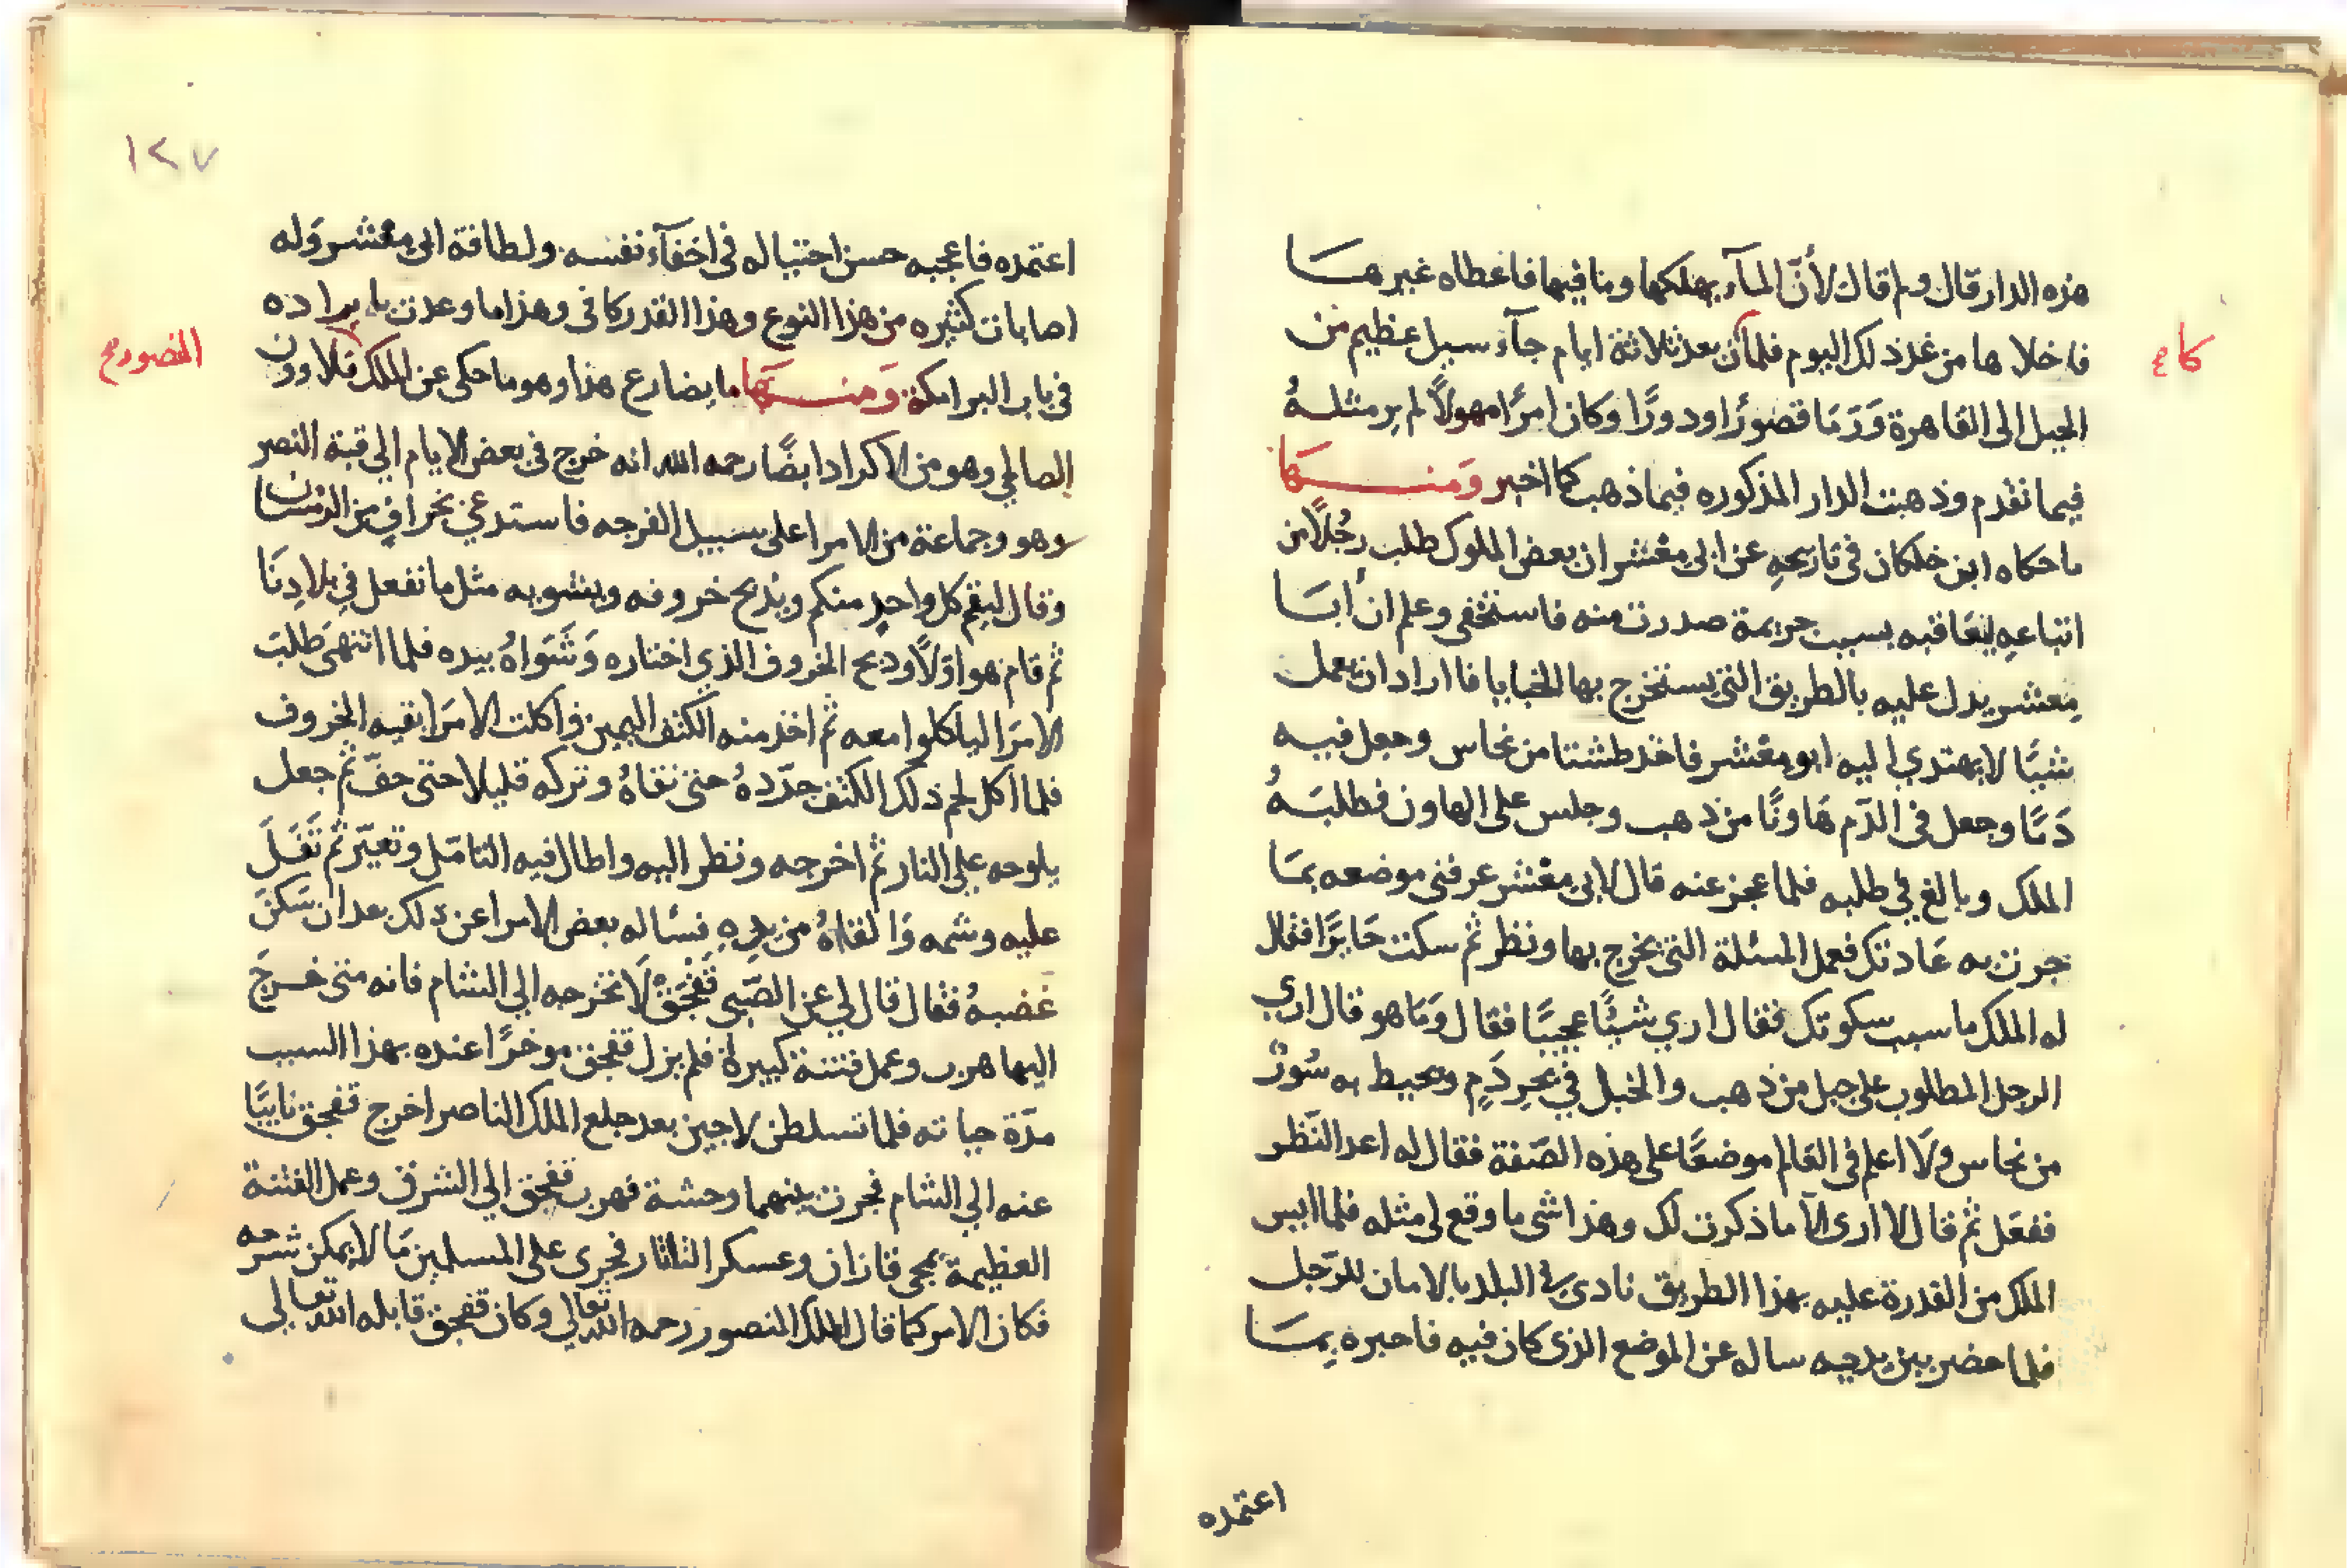 هذه الدار قال ولم قال لأنّ المآء يهلكها وما فيها فاعطاه غيرها
فاخلاها من غد ذلك اليوم فلما كان بعد ثلاثة ايام جآء سيل عظيم من
الجبل الى القاهرة وَرَمَا قصورًا ودورًا وكان امرًا مهولًا لم ير مثلهُ
فيما تقدم وذهبت الدار المذكوره فيما ذهب كما اخبر وَمنها
ما حكاه ابن خلكان في تاريخهِ عن ابي معْشر ان بعض الملوك طلب رجُلًا من
اتباعهِ ليعَاقبه بسبب جريمة صدرت منه فاستخفى وعلم ان أبَا
مِعشر يدل عليه بالطريق التي يستخرج بها الخبايا فاراد ان يعمل
شيئًا لا يهتدي اليه ابو معْشر فاخذ طشتا من نحاس وجعل فيه
دَمًا وجعل في الدّم هَاونًا من ذهب وجلس على الهاون فطلبَهُ
الملك وبالغ في طلبه فلما عجز عنه قال لابي معْشر عرفني موضعه بمَا
جرت به عَادتك فعمل المسئلة التي يخرج بها ونظر ثم سكت حَايرًا فقال
له الملك ما سبب سكوتك فقال اري شيئًا عجيبًا فقال وَمَا هو قال اري
الرجل المطلوب على جبل من ذهب والجبل في بحرِ دَمٍ ومحيط به سُورٌ
من نحاس ولَا اعلم في العَالم موضعًا على هذه الصّفة فقال له اعد النّظر
ففعَل ثم قال لا ارى الّا ما ذكرت لك وهذا شي ما وقع لي مثله فلما ايس
الملك من القدرة عليه بهذا الطريق نادى في البلد بالامان للرّجل
فلما حضر بين يديه ساله عن الموضع الذي كان فيه فاخبره بِمَا
كا ع
اعتمده
١٢٧
اعتمده فاعجبه حسن احتياله في اخفآء نفسه ولطافة ابي معْشر وَله
اصابات كثيره من هذا النوع وهذا القدر كافى وهذا ما وعدت بايراده
في باب البرامكة وَمنها ما يضارع هذا وهو ما حكى عن الملك قلاوون
المنصور صح
الصالحي وهو من الاكراد ايضًا رحمه الله انه خرج في بعض الايام الي قبة النصر
وهو وجماعة من الامرا على سبيل الفرجه فاستدعي بخرافٍ من الرمسان
وقال ليقم كل واحدٍ منكم ويذبح خروفه ويشويه مثل ما نفعل في بلادِنَا
ثم قام هو اوّلًا وذبح الخروف الذي اختاره وَشَوَاهُ بيده فلما انتهىَ طلبَ
الامرَا لياكلوا معه ثم اخذ منه الكتف اليمين واكلت الامرَا بقيه الخروف
فلما اكل لحم ذلك الكتف جرّدهُ حتى نقاهُ وتركه قليلا حتى جفّ ثم جعل
يلوحه علي النار ثم اخرجه ونظر اليه واطال فيه التامّل وتغيّر ثم تَفَلَ
عليه وشمه وَالقاهُ من يدِهِ فسأله بعض الامرا عن ذلك بعد ان سَكنَ
غضبهُ فقال قال لي عن الصّبي قَفْجَقْ لَا تخرجه الي الشام فانه متي خرجَ
اليها هرب وعمل فتنة كبيرة فلم يزل قفجق موخرًا عنده بهذا السبب
مدّة حياته فلما تسلطن لاجين بعد خلع الملك الناصر اخرج قفجق نايبًا
عنه الي الشام فجرت بينهما وحشة فهرب قفجق الي الشرق وعمل الفتنة
العظيمة بمجي قازان وعسكر التاتار فجرى على المسلمين مَا لا يمكن شرحه
فكان الامر كما قال الملك المنصور رحمه الله تعالي وكان قفجق قابله الله تعالي